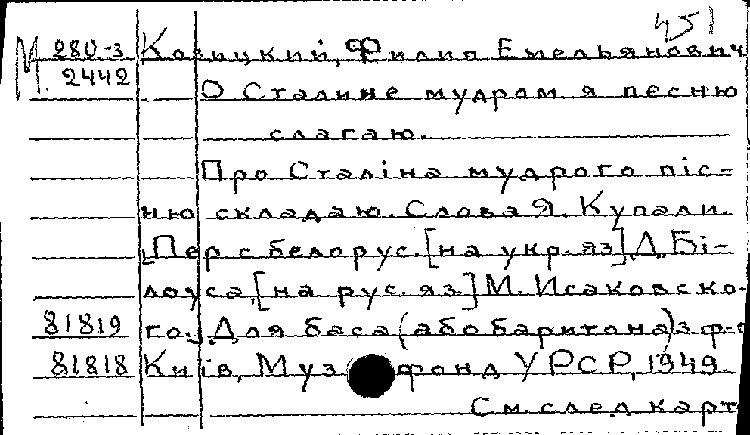 451
М 280-3 Козицкий, Филип Емельянович
2442
О Сталине мудром я песню
слагаю.
Про Сталіна мудрого піс=
ню складаю. Слова Я. Купали.
[Пер. с белорус. [на укр. яз] Д. Бі-
лоуса, [на рус. яз] М. Исаковско-
81819 го.] Для баса (або баритона) з ф-
81818 Київ, Муз фонд УРСР, 1949
См. след карт